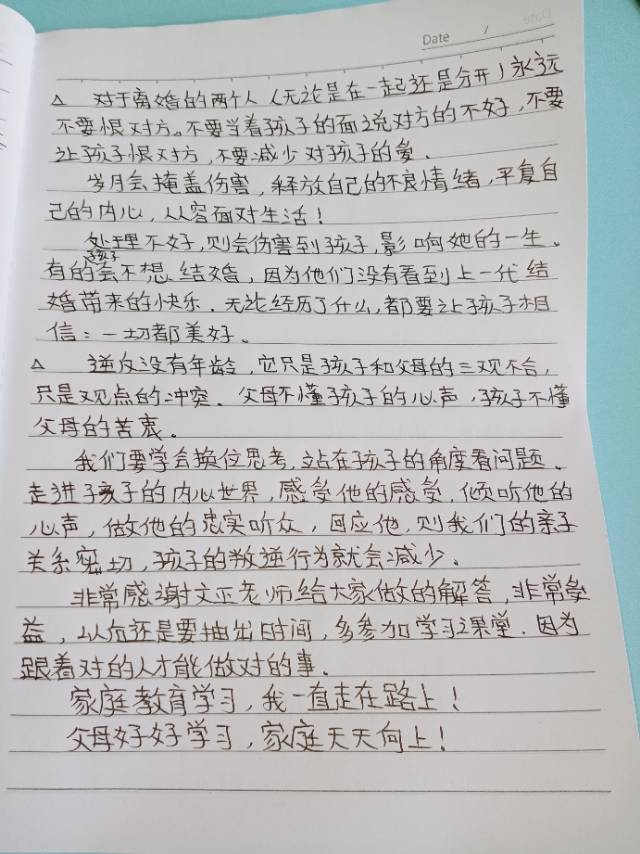 Date /
△ 对于离婚的两个人(无论是在一起还是分开)永远
不要恨对方。不要当着孩子的面说对方的不好,不要
让孩子恨对方,不要减少对孩子的爱。
岁月会掩盖伤害,释放自己的不良情绪,平复自
己的内心,从容面对生活!
处理不好,则会伤害到孩子,影响她的一生。
孩子
有的会不想结婚,因为他们没有看到上一代结
婚带来的快乐。无论经历了什么,都要让孩子相
信:一切都美好。
△ 逆反没有年龄,它只是孩子和父母的三观不合,
只是观点的冲突。父母不懂孩子的心声,孩子不懂
父母的苦衷。
我们要学会换位思考,站在孩子的角度看问题。
走进孩子的内心世界,感受他的感受,倾听他的
心声,做他的忠实听众,回应他,则我们的亲子
关系密切,孩子的叛逆行为就会减少。
非常感谢文正老师给大家做的解答,非常受
益,以后还是要抽出时间,多参加学习课堂。因为
跟着对的人才能做对的事。
家庭教育学习,我一直走在路上!
父母好好学习,家庭天天向上!